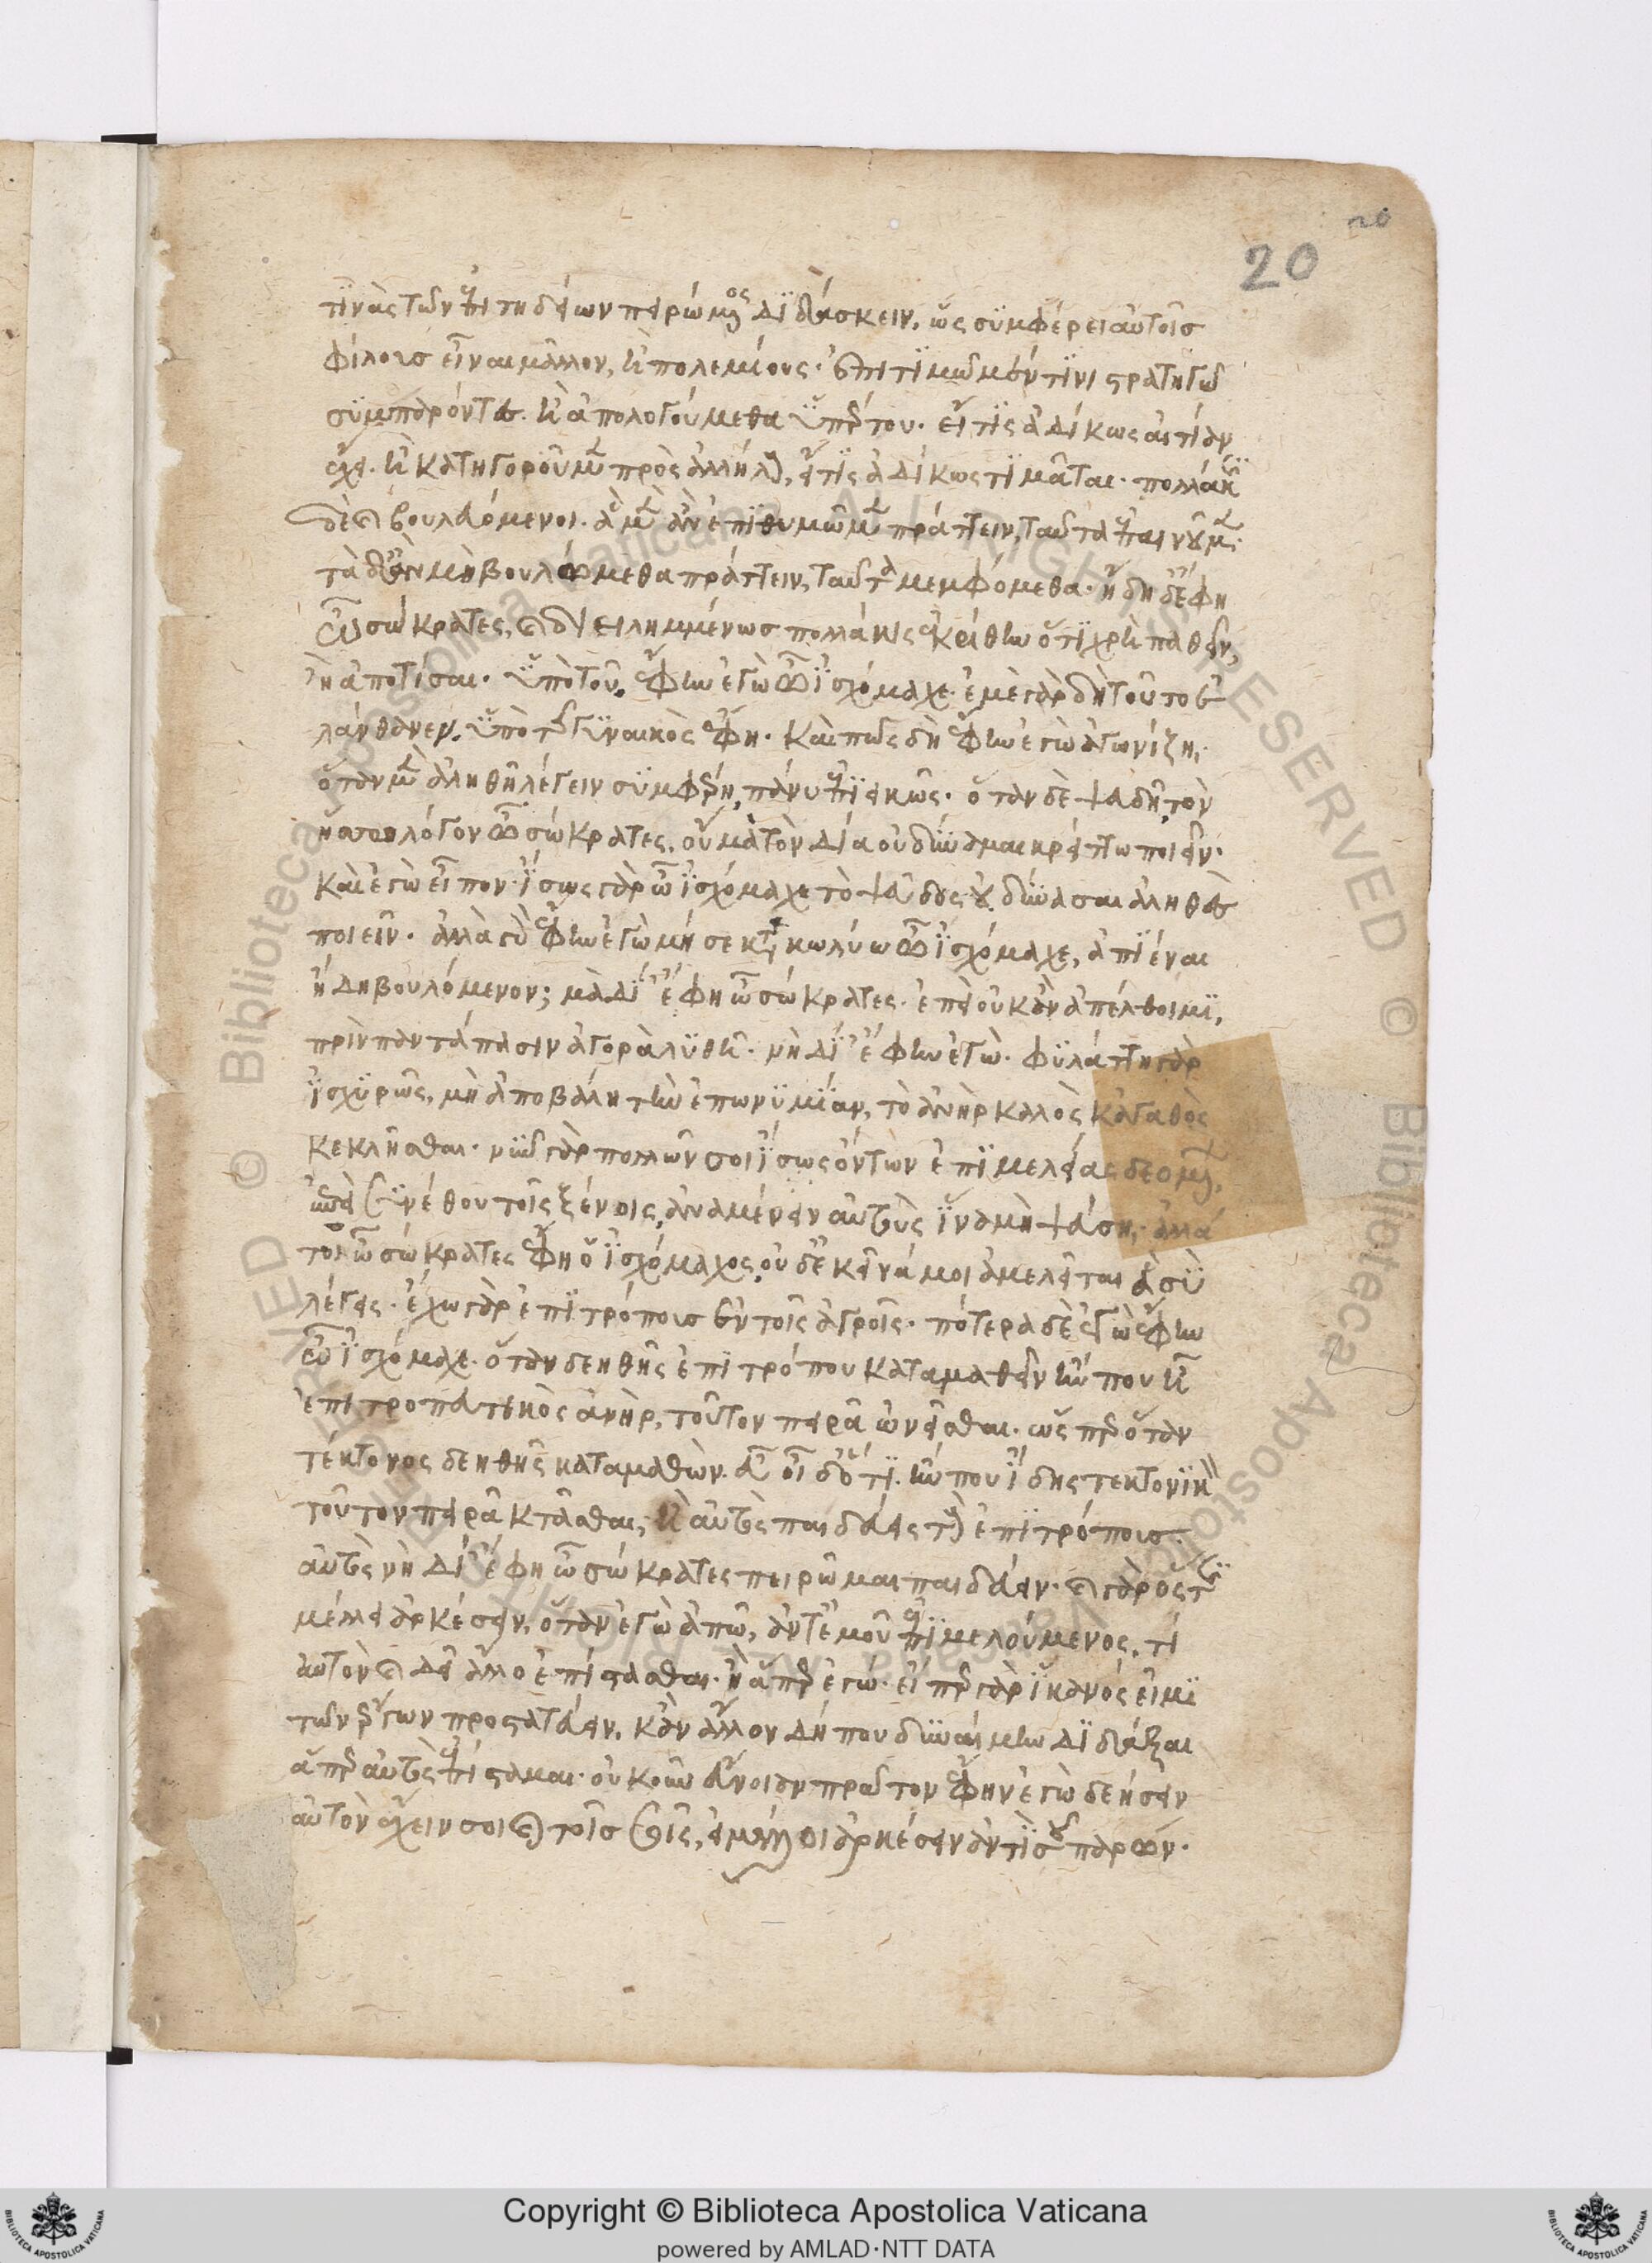 20
20
τινὰς τῶν ἐπιτηδείων πειρώμενος διδάσκειν, ὡς συμφέρει αὐτοῖς
φίλους εἶναι μᾶλλον, ἢ πολεμίους· ἐπιτιμῶμέν τινι στρατηγῶ
συμπαρόντες. ἢ ἀπολογούμεθα ὑπέρ του· εἴ τις ἀδίκως αἰτίαν
ἔχει. ἢ κατηγοροῦμεν πρὸς ἀλλήλους, εἴ τις ἀδίκως τιμᾶται. πολλάκις
δὲ καὶ βουλευόμενοι. ἃ μὲν ἂν ἐπιθυμῶμεν πράττειν, ταῦτα ἐπαινοῦμεν·
τὰ δ' ἂν μὴ βουλώμεθα πράττειν, ταῦτα μεμφόμεθα· ἤδη δ' ἔφη
ὦ σώκρατες, καὶ διειλημμένως πολλάκις ἐκρίθην ὅτι χρὴ παθεῖν,
ἢ ἀποτίσαι. ὑπὸ τοῦ, ἔφην ἐγὼ ὦ ἰσχόμαχε· ἐμὲ γὰρ δὴ τοῦτο ἐ
λάνθανεν. ὑπὸ τῆς γυναικὸς ἔφη. καὶ πῶς δὴ ἔφην ἐγὼ ἀγωνίζη,
ὅταν μὲν ἀληθῆ λέγειν συμφέρη, πάνυ ἐπιεικῶς· ὅταν δὲ ψευδῆ, τὸν
ἥττω λόγον ὦ σώκρατες, οὐ μὰ τὸν δία οὐ δύναμαι κρείττω ποιεῖν.
καὶ ἐγὼ εἶπον· ἴσως γὰρ ὦ ἰσχόμαχε τὸ ψεῦδος οὐ δύνασαι ἀληθὲς
ποιεῖν. ἀλλὰ γὰρ ἔφην ἐγὼ μή σε κατακωλύω ὦ ἰσχόμαχε, ἀπιέναι
ἤδη βουλόμενον; μὰ δί' ἔφη ὦ σώκρατες. ἐπεὶ οὐκ ἂν ἀπέλθοιμι,
πρὶν παντάπασιν ἀγορὰ λυθῆ. νὴ δί' ἔφην ἐγώ· φυλάττη γὰρ
ἰσχυρῶς, μὴ ἀποβάλη τὴν ἐπωνυμίαν, τὸ ἀνὴρ καλὸς κἀγαθὸς
κεκλῆσθαι. νῦν γὰρ πολλῶν σοι ἴσως ὄντων ἐπιμελείας δεομένων,
ἐπεὶ συνέθου τοῖς ξένοις, ἀναμένειν αὐτοὺς ἵνα μὴ ψεύση· ἀλλά
τοι ὦ σώκρατες ἔφη ὁ ἰσχόμαχος, οὐδ' ἐκεῖνά μοι ἀμελεῖται ἃ σὺ
λέγεις. ἔχω γὰρ ἐπιτρόπους ἐν τοῖς ἀγροῖς· πότερα δὲ ἐγὼ ἔφην
ὦ ἰσχόμαχε. ὅταν δεηθῆς ἐπιτρόπου καταμαθεῖν ἤν που ἦ
ἐπιτροπευτικὸς ἀνὴρ, τοῦτον πειρᾶ ὠνεῖσθαι. ὥσπερ ὅταν
τέκτονος δεηθῆς καταμαθὼν εὖ οἶδ' ὅτι. ἤν που ἴδης τεκτονικὸν
τοῦτον πειρᾶ κτᾶσθαι, ἢ αὐτὸς παιδεύεις τοὺς ἐπιτρόπους.
αὐτὸς νὴ δί' ἔφη ὦ σώκρατες πειρῶμαι παιδεύειν. καὶ γὰρ ὅστις
μέλλει ἀρκέσειν, ὅταν ἐγὼ ἀπῶ, ἀντ' ἐμοῦ ἐπιμελούμενος, τί
αὐτὸν καὶ δεῖ ἄλλο ἐπίστασθαι. ἢ ἅπερ ἐγώ· εἴπερ γὰρ ἱκανός εἰμι
τῶν ἔργων προστατεύειν, κἂν ἄλλον δήπου δυναίμην διδάξαι
ἅπερ αὐτὸς ἐπίσταμαι. οὐκοῦν εὔνοιαν πρῶτον ἔφην ἐγὼ δεήσειν
αὐτὸν ἔχειν σοι καὶ τοῖς σοῖς, εἰ μέλλοι ἀρκέσειν ἀντὶ σοῦ παρών.
Copyright © Biblioteca Apostolica Vaticana
powered by AMLAD·NTT DATA